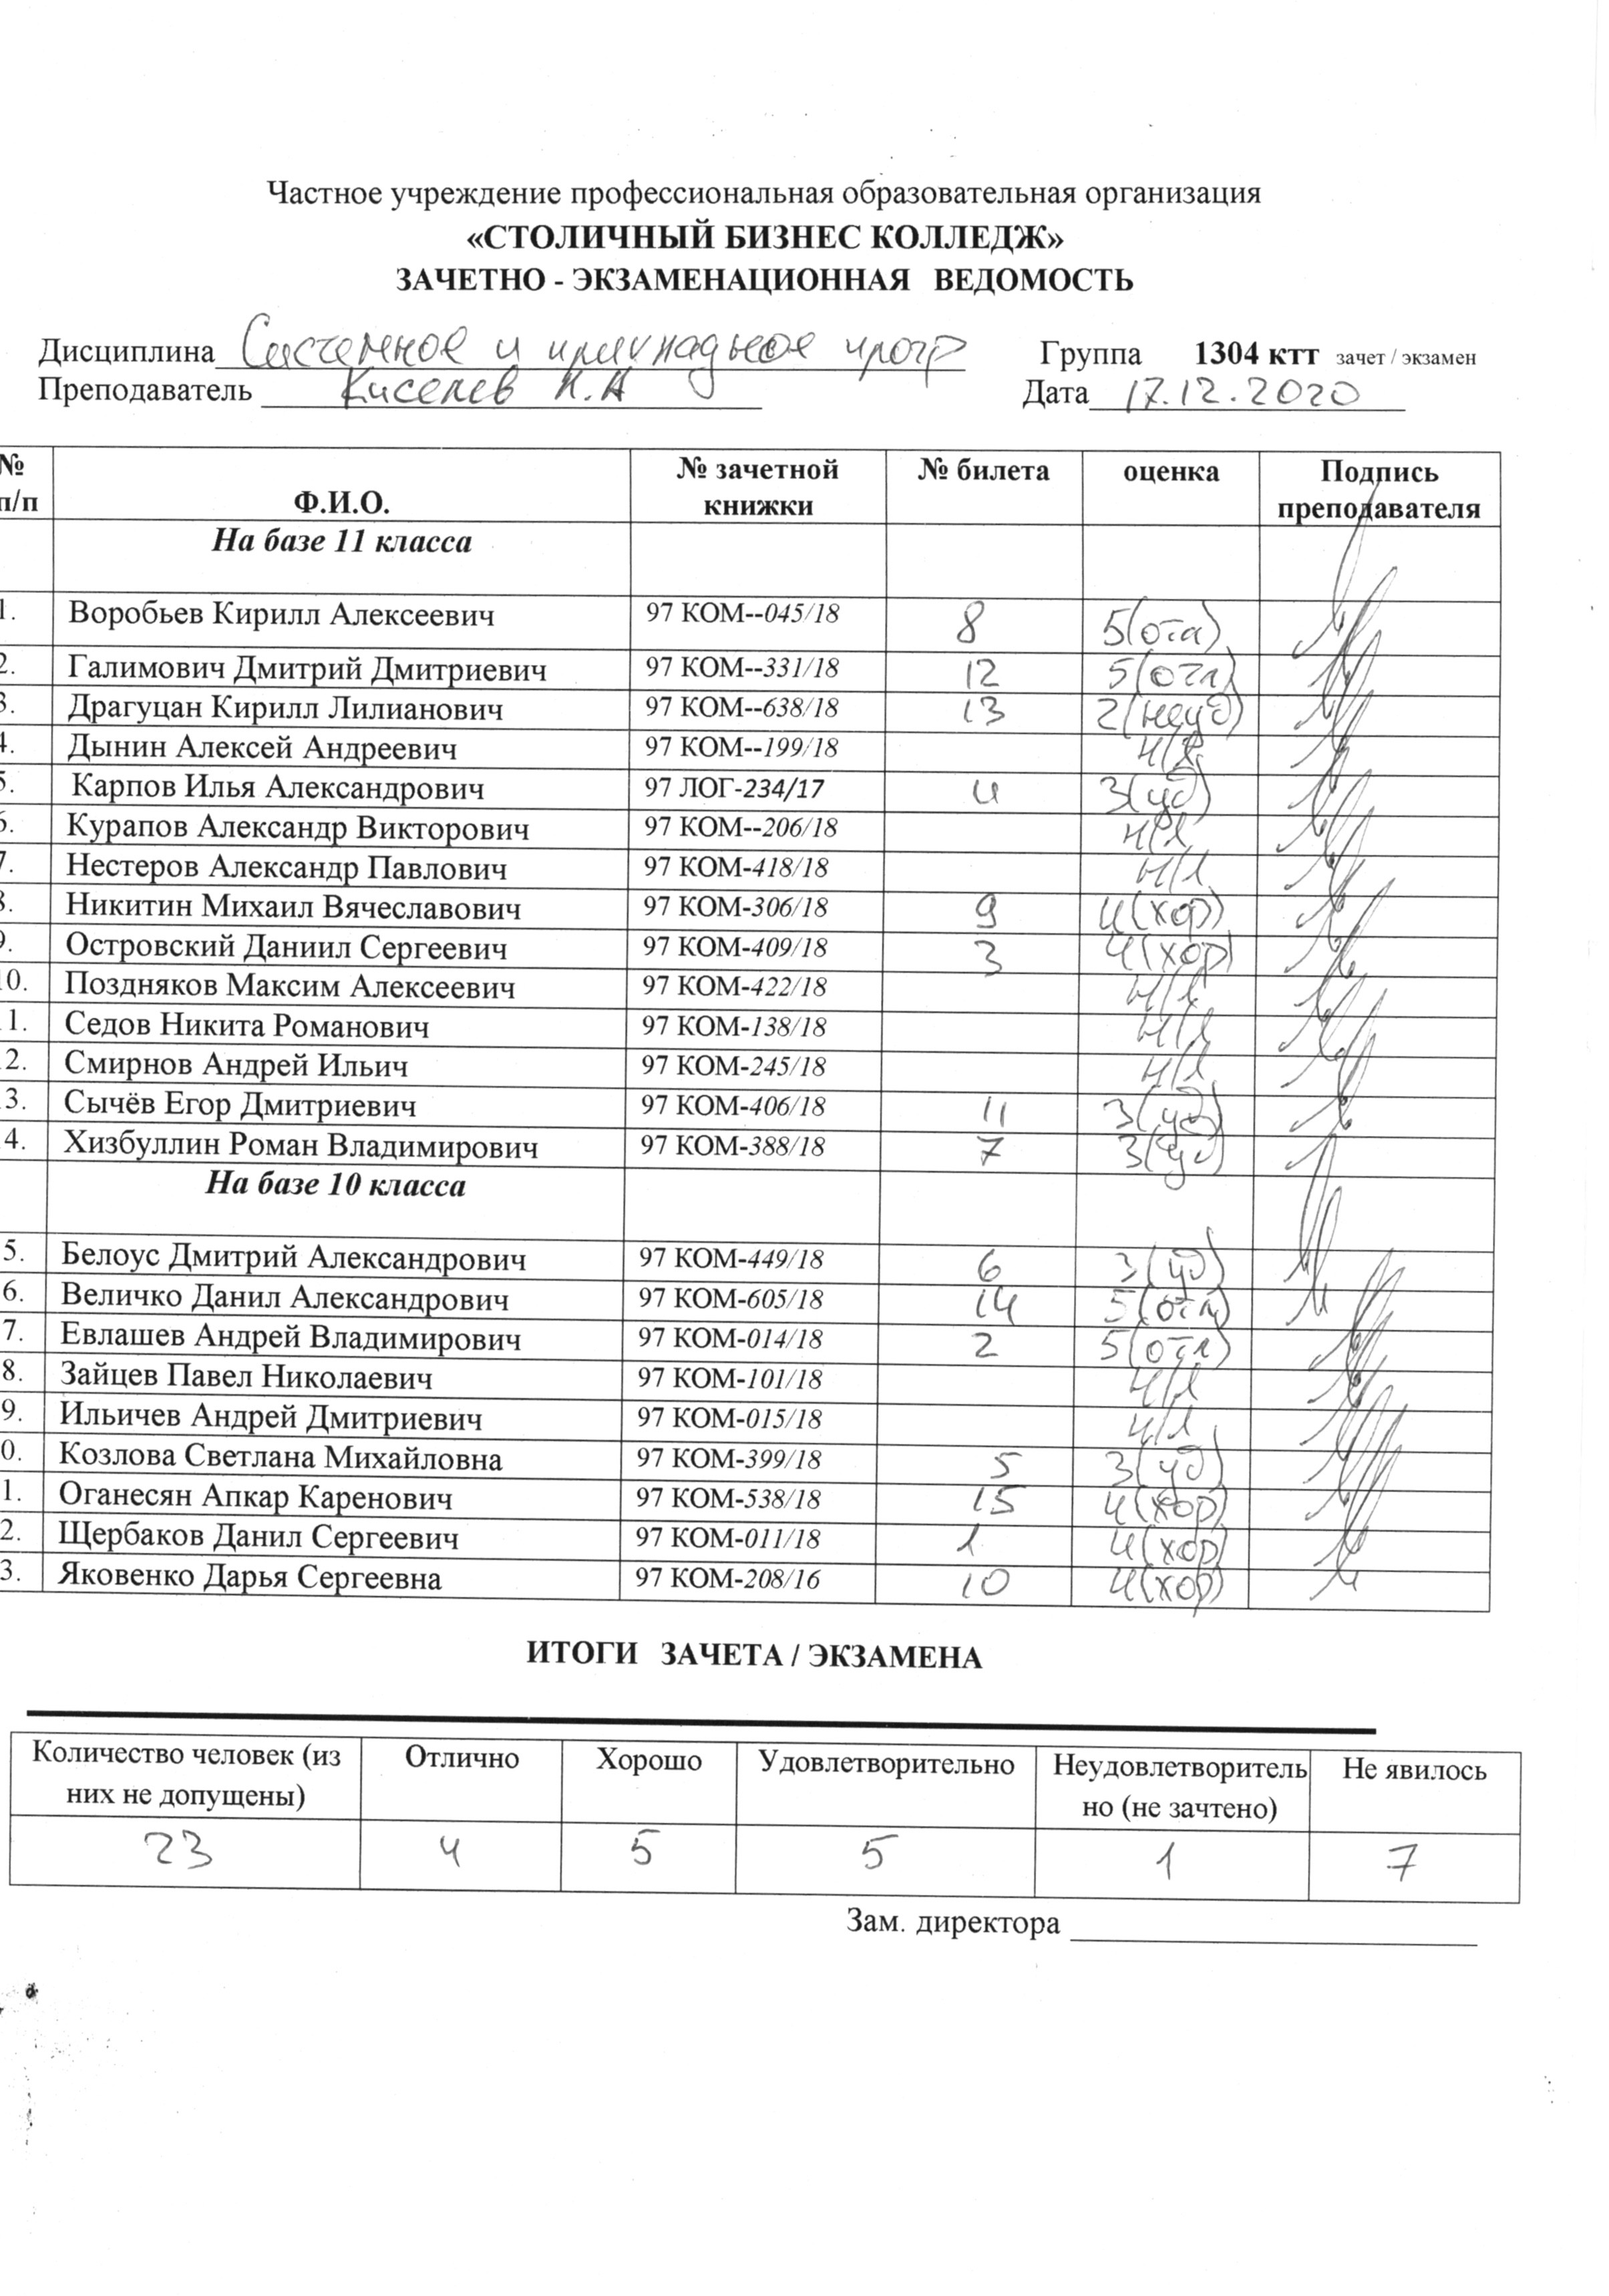 Частное учреждение профессиональная образовательная организация
«СТОЛИЧНЫЙ БИЗНЕС КОЛЛЕДЖ»
ЗАЧЕТНО - ЭКЗАМЕНАЦИОННАЯ ВЕДОМОСТЬ
Дисциплина Системное и прикладное прогр Группа 1304 ктт зачет / экзамен
Преподаватель Киселев Дата 17.12.2020
№ п/п Ф.И.О. № зачетной книжки № билета оценка Подпись преподавателя
На базе 11 класса
1. Воробьев Кирилл Алексеевич 97 КОМ--045/18 8 5(отл)
2. Галимович Дмитрий Дмитриевич 97 КОМ--331/18 12 5(отл)
3. Драгуцан Кирилл Лилианович 97 КОМ--638/18 13 2(неуд)
4. Дынин Алексей Андреевич 97 КОМ--199/18 н/я
5. Карпов Илья Александрович 97 ЛОГ-234/17 4 3(уд)
6. Курапов Александр Викторович 97 КОМ--206/18 н/я
7. Нестеров Александр Павлович 97 КОМ-418/18 н/я
8. Никитин Михаил Вячеславович 97 КОМ-306/18 9 4(хор)
9. Островский Даниил Сергеевич 97 КОМ-409/18 3 4(хор)
10. Поздняков Максим Алексеевич 97 КОМ-422/18 н/я
11. Седов Никита Романович 97 КОМ-138/18 н/я
12. Смирнов Андрей Ильич 97 КОМ-245/18 н/я
13. Сычёв Егор Дмитриевич 97 КОМ-406/18 11 3(уд)
14. Хизбуллин Роман Владимирович 97 КОМ-388/18 7 3(уд)
На базе 10 класса
5. Белоус Дмитрий Александрович 97 КОМ-449/18 6 3(уд)
6. Величко Данил Александрович 97 КОМ-605/18 14 5(отл)
7. Евлашев Андрей Владимирович 97 КОМ-014/18 2 5(отл)
8. Зайцев Павел Николаевич 97 КОМ-101/18 н/я
9. Ильичев Андрей Дмитриевич 97 КОМ-015/18 н/я
0. Козлова Светлана Михайловна 97 КОМ-399/18 5 3(уд)
1. Оганесян Апкар Каренович 97 КОМ-538/18 15 4(хор)
2. Щербаков Данил Сергеевич 97 КОМ-011/18 1 4(хор)
3. Яковенко Дарья Сергеевна 97 КОМ-208/16 10 4(хор)
ИТОГИ ЗАЧЕТА / ЭКЗАМЕНА
Количество человек (из Отлично Хорошо Удовлетворительно Неудовлетворитель Не явилось
них не допущены) но (не зачтено)
23 4 5 5 1 7
Зам. директора